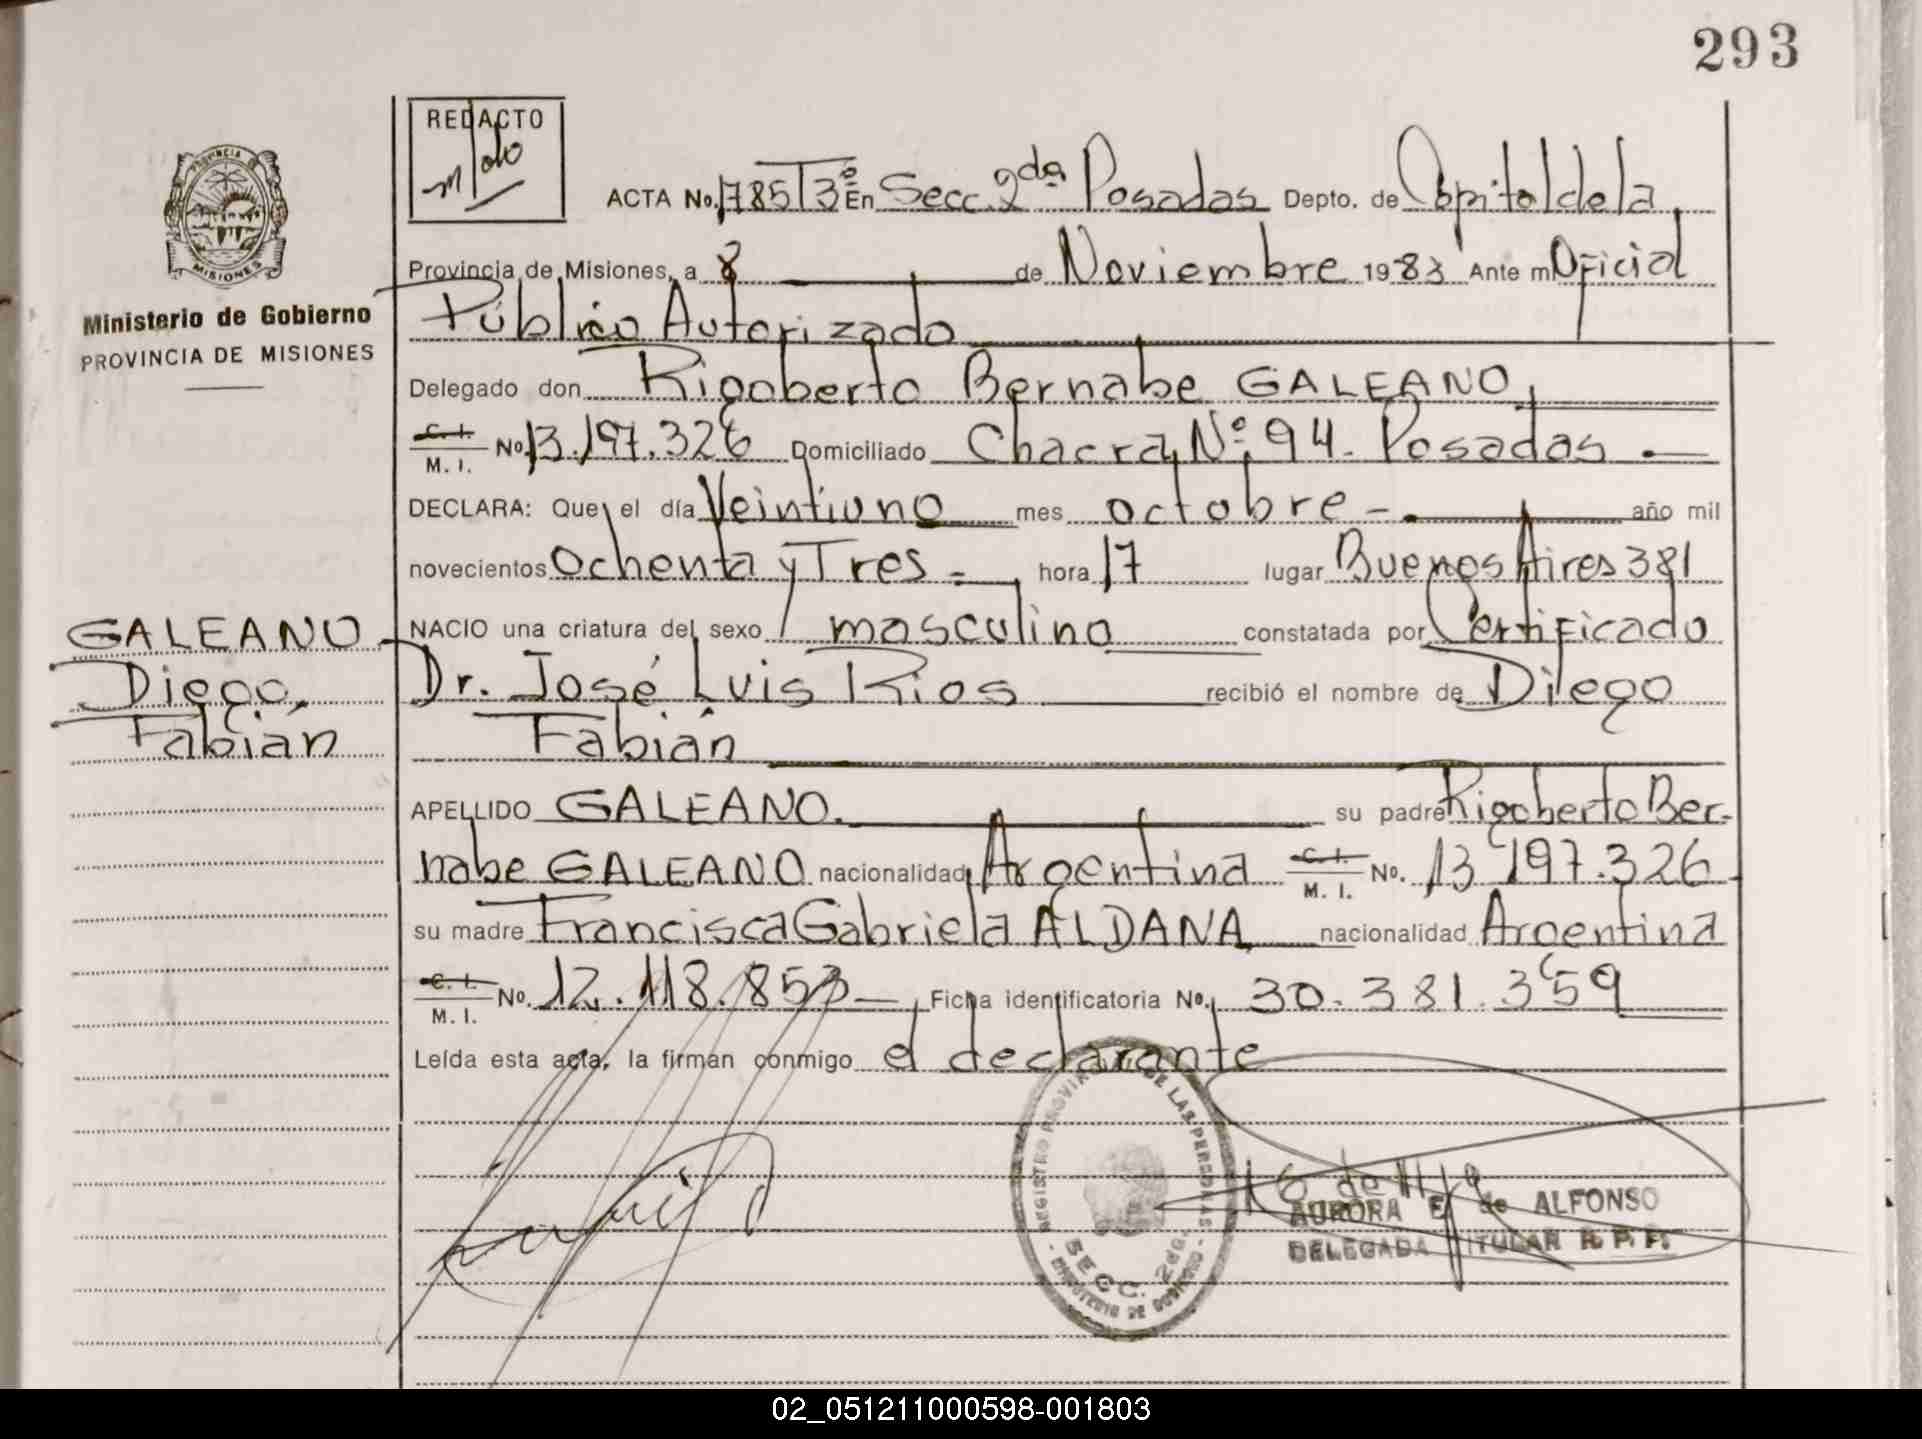 293
REDACTO
PROVINCIA DE
MISIONES
Ministerio de Gobierno
PROVINCIA DE MISIONES
ACTA No. 1785 T3º En Secc. 2da Posadas Depto. de Capital de la
Provincia de Misiones, a 8 de Noviembre 1983 Ante mí Oficial
Público Autorizado
Delegado don Rigoberto Bernabe GALEANO,
C. I. M. I. No. 13.197.326 Domiciliado Chacra Nº 94. Posadas.
DECLARA: Que el día Veintiuno mes octubre - año mil
novecientos Ochenta y Tres = hora 17 lugar Buenos Aires 381
GALEANO
Diego
Fabián
NACIO una criatura del sexo masculino constatada por Certificado
Dr. José Luis Rios recibió el nombre de Diego
Fabián
APELLIDO GALEANO. su padre Rigoberto Ber-
nabe GALEANO nacionalidad Argentina C. I. M. I. No. 13.197.326
su madre Francisca Gabriela ALDANA nacionalidad Argentina
C. I. M. I. No. 12.118.853 Ficha identificatoria No. 30.381.359
Leída esta acta, la firman conmigo el declarante
REGISTRO PROVINCIAL DE LAS PERSONAS
SECC. 2da.
- MINISTERIO DE GOBIERNO -
AURORA E. de ALFONSO
DELEGADA TITULAR R. P. P.
02_051211000598-001803